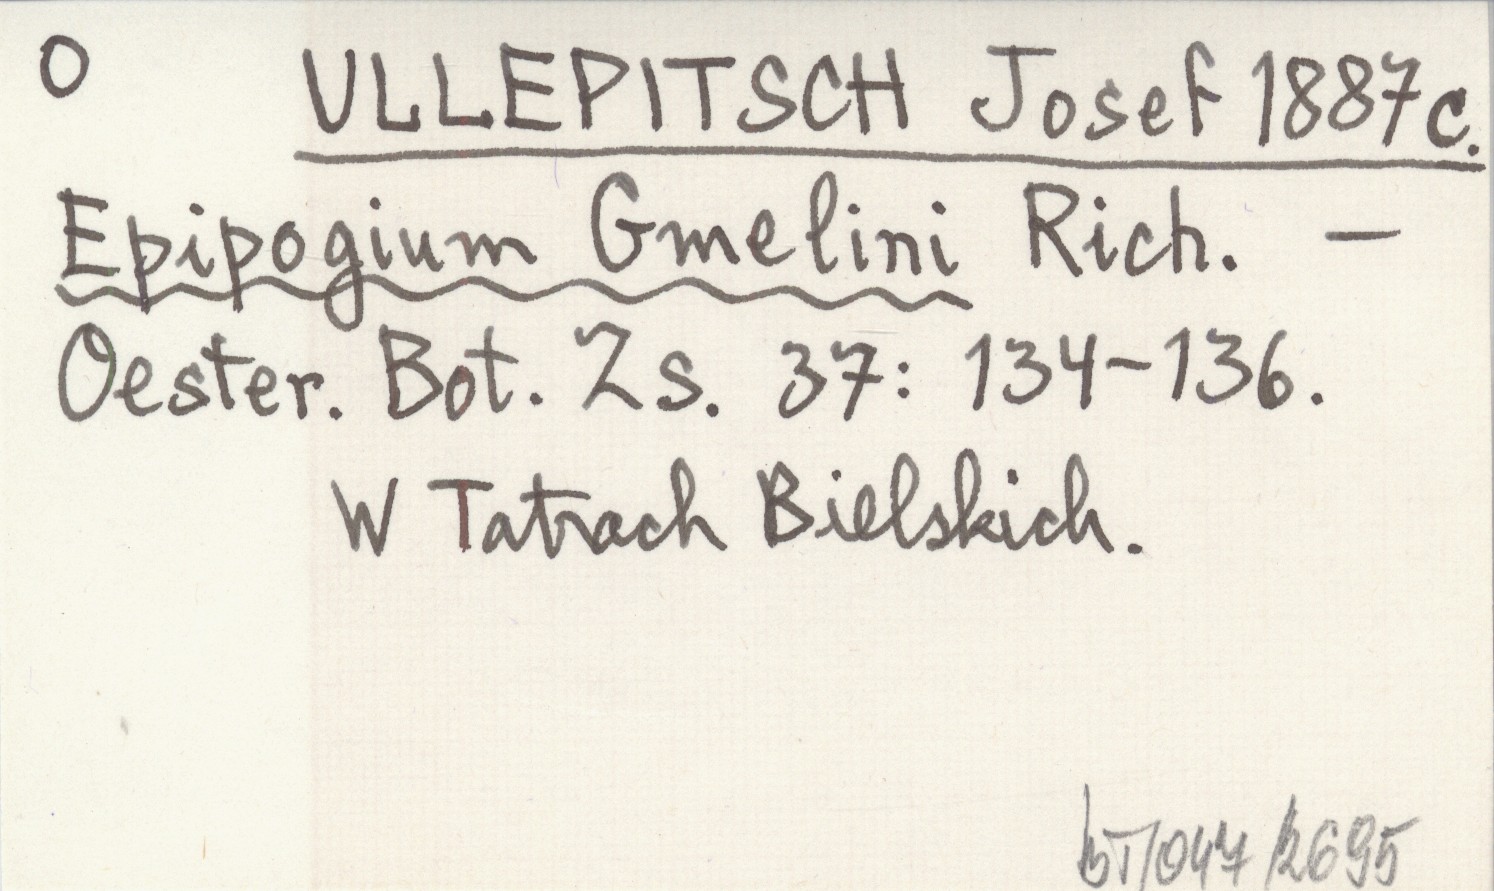 O ULLEPITSCH Josef 1887c.
Epipogium Gmelini Rich. –
Oester. Bot. Zs. 37: 134–136.
W Tatrach Bielskich.
bT/047/2695